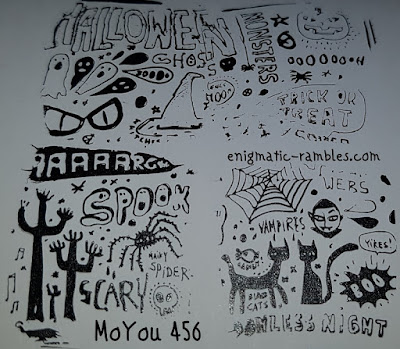 HALLOWEEN
GHOSTS
MONSTERS
TRICK OR
TREAT
AAAARGH
enigmatic-rambles.com
SPOOK
WEBS
VAMPIRES
Yikes!
HAIRY
SPIDER
SCARY
BOO
BLACK
CATS
NIGHT
MoYou 456